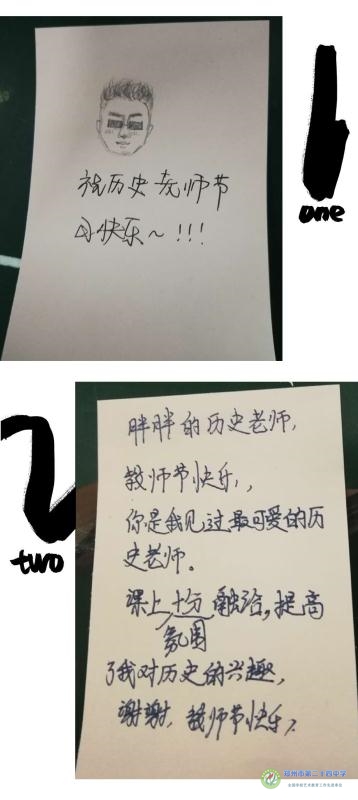 祝历史老师节
日快乐~!!!
one
胖胖的历史老师,
教师节快乐,,
你是我见过最可爱的历
史老师。
two
课上十分融洽,提高
氛围
了我对历史的兴趣,
谢谢,教师节快乐,
郑州市第二十四中学